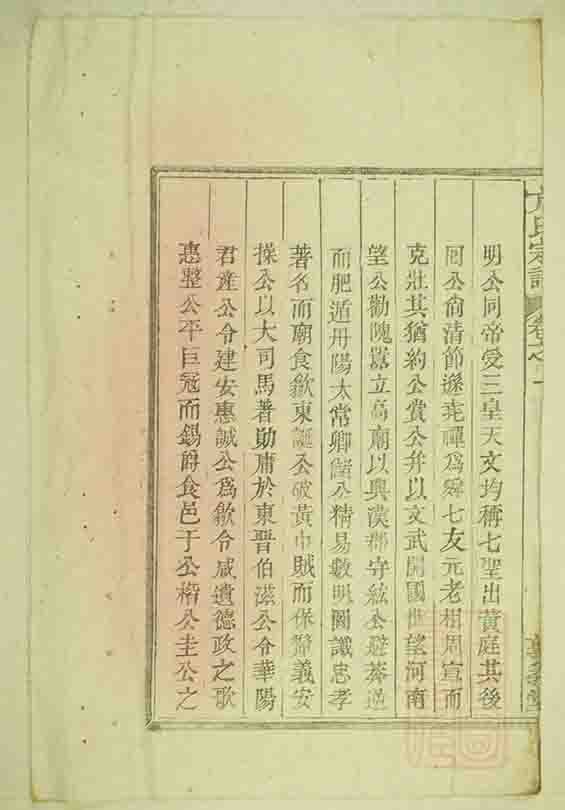 明公同帝受三皇天文均稱七聖出黃庭其後
回公尙清節遜堯禪爲舜七友元老相周宣而
克壯其猶約公賞公并以文武開國世望河南
望公勸隗囂立高廟以興漢郡守紘公避莽逆
而肥遁丹陽太常卿儲公精易數明圖讖忠孝
著名而廟食歙東誕公破黃巾賊而保障義安
操公以大司馬著勛庸於東晉伯滋公令華陽
君逢公令建安惠誠公爲歙令咸遺德政之歌
惠整公平巨冠而錫爵食邑于公楷公圭公之
方氏宗譜 卷之一